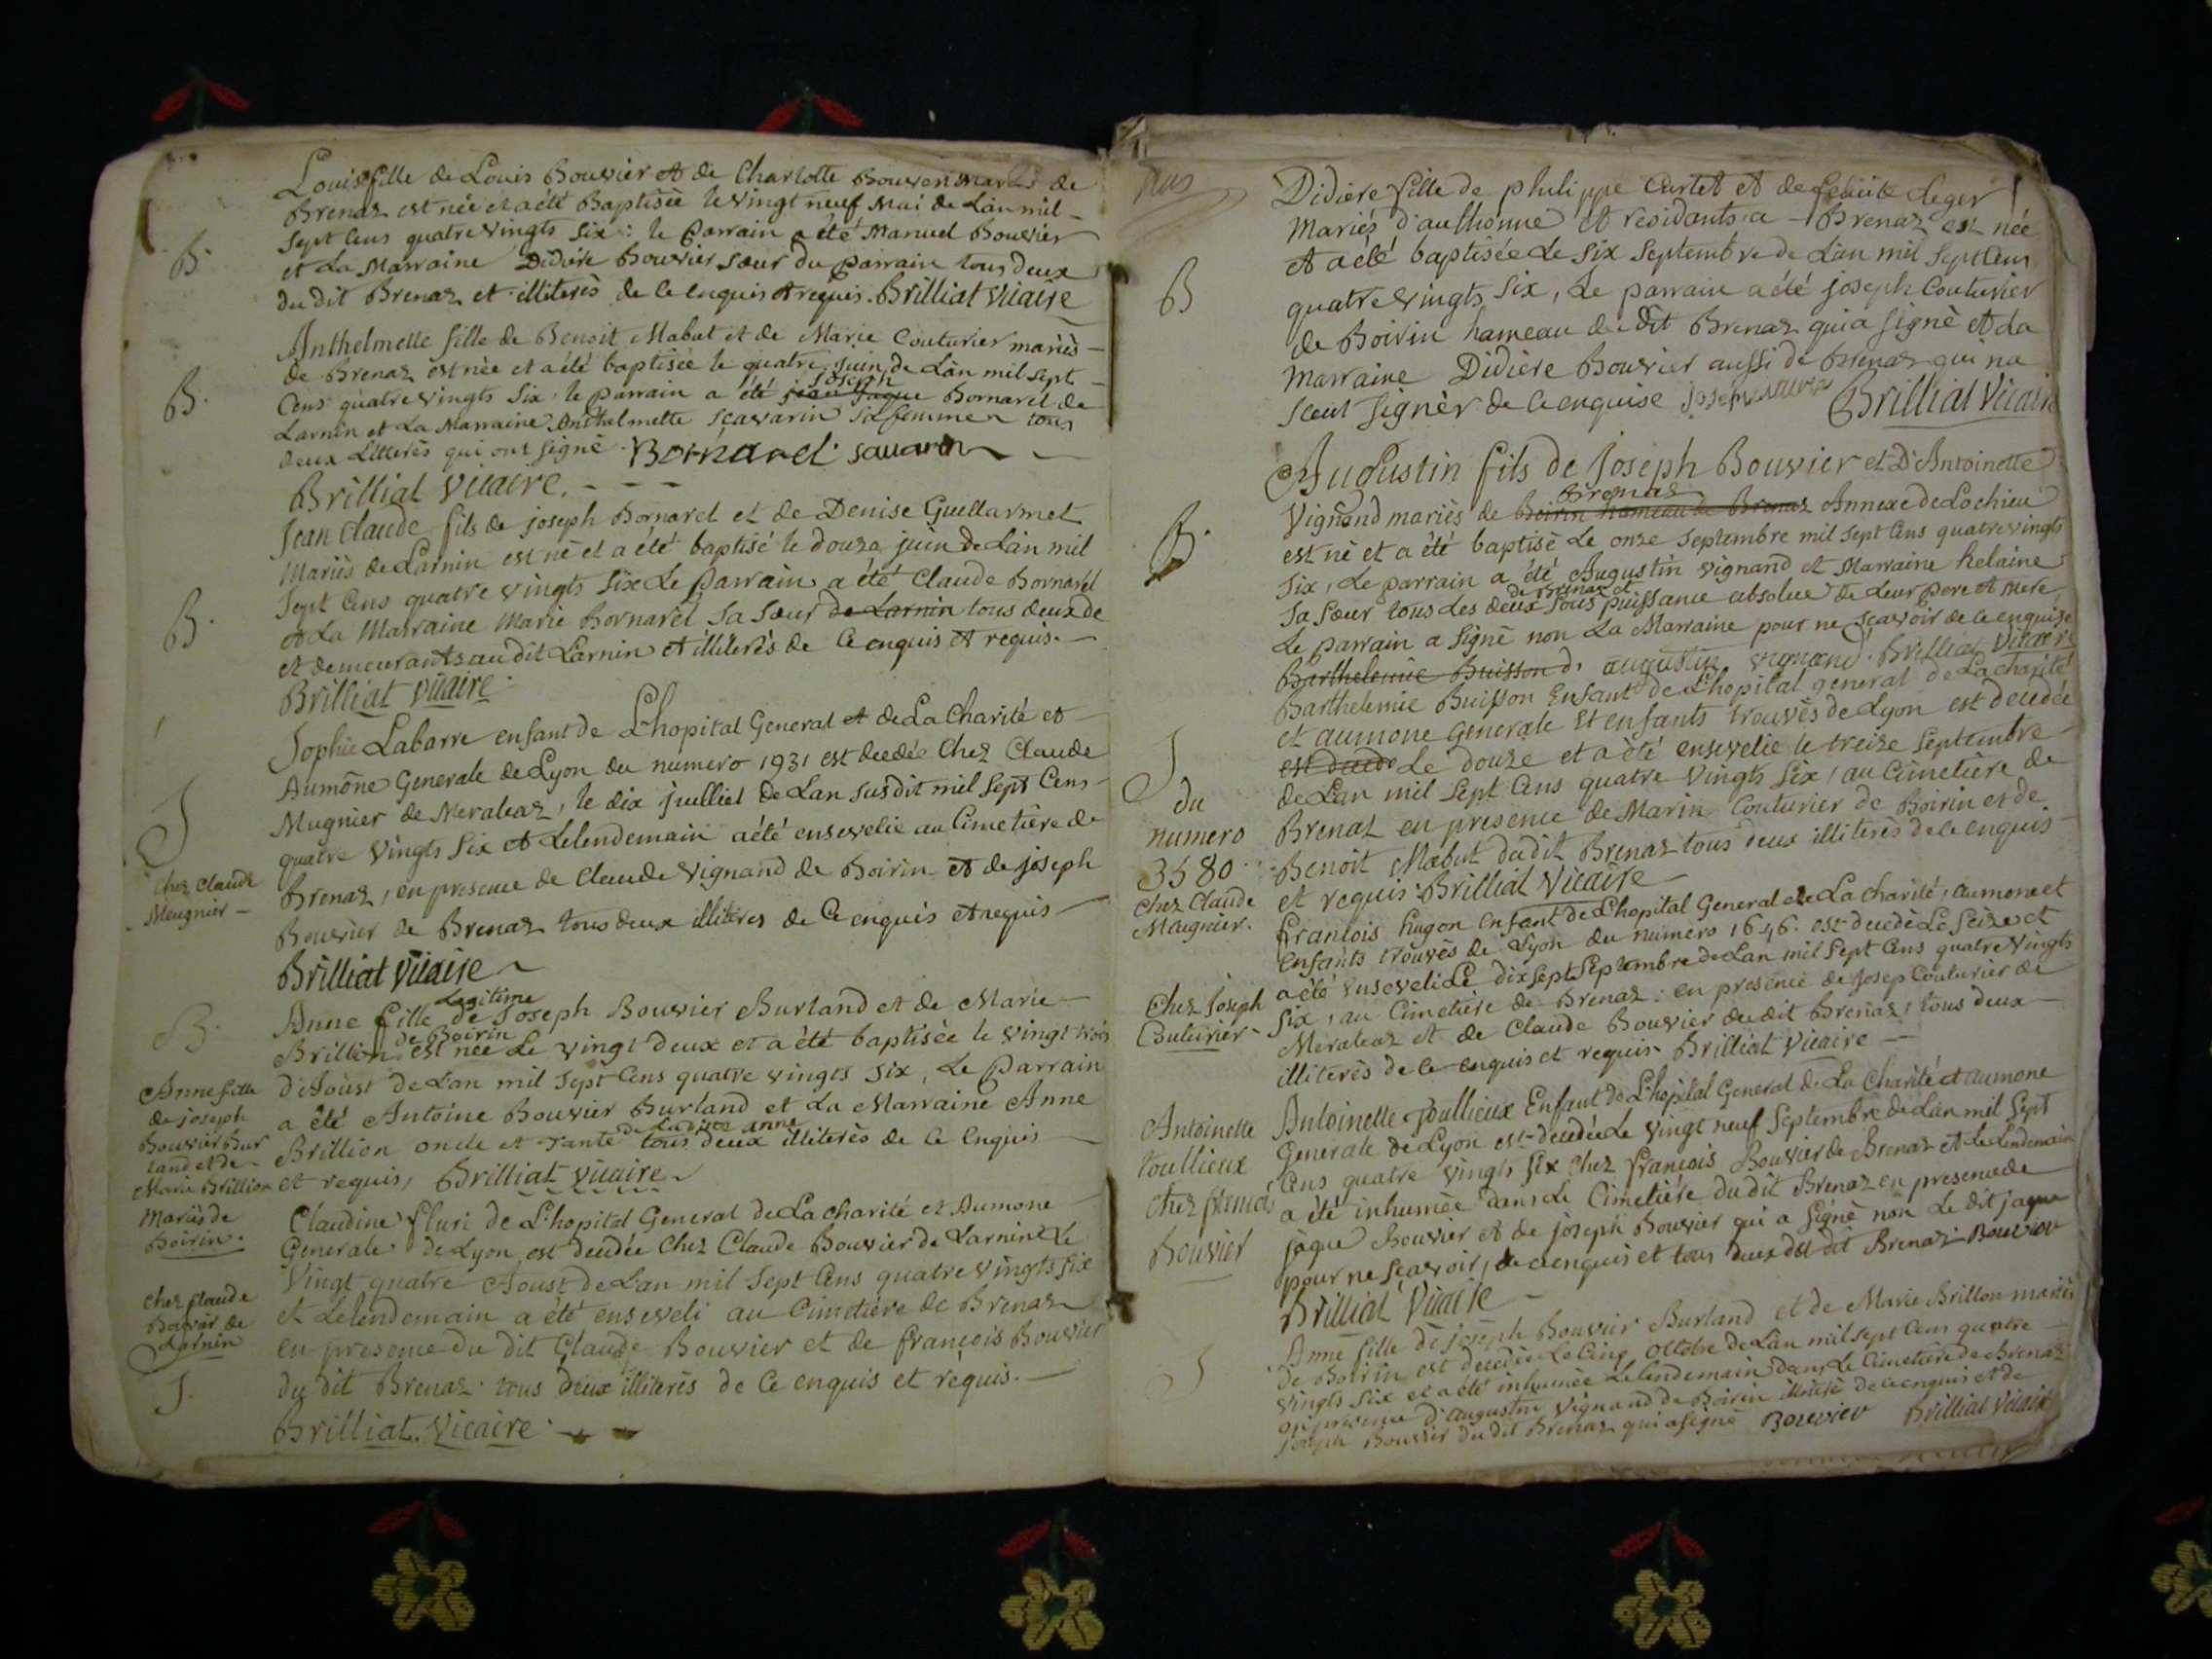 Louise fille de Louis Bouvier et de Charlotte Bouvier mariés de
Brenaz est née et a été Baptisée le vingt neuf Mai de L'an mil
Sept Cens quatre vingts Six : le Parrain a été Manuel Bouvier
et La Marraine Didiére Bouvier Sœur du Parrain tous deux
du dit Brenaz et illiterés de Ce enquis et requis. Brilliat Vicaire
B.
Anthelmette fille de Benoit Mabut et de Marie Couturier mariés
de Brenaz est née et a été baptisée le quatre Juin de L'an mil Sept
Joseph
Cens quatre vingts Six. le parrain a été jean Jaque Bornarel de
Larnin et La Marraine Anthelmette Scavarin Sa femme tous
deux Litterés qui ont Signé. Bornarel. Savarin
B.
Brilliat Vicaire.
Jean Claude fils de joseph Bornarel et de Denise Guillarmet
Mariés de Larnin est né et a été baptisé le douze juin de L'an mil
Sept Cens quatre vingts Six Le Parrain a été Claude Bornarel
et La Marraine Marie Bornarel Sa Sœur de Larnin tous deux de
et demeurants au dit Larnin et illiterés de Ce enquis et requis.
B.
Brilliat Vicaire.
Sophie Labarre enfant de L'hopital General et de La Charité et
Aumône Generale de Lyon du numero 1931 est decedée Chez Claude
Mugnier de Meraleaz, le dix juilliet de Lan susdit mil Sept Cens
quatre Vingts Six et Lelendemain a été ensevelie au Cimetiére de
Brenaz, en presence de Claude Vignand de Boirin et de joseph
Bouvier de Brenaz tous deux illiteres de Ce enquis et requis
S
Chez Claude
Meugnier
Brilliat Vicaire
Legitime
Anne fille de Joseph Bouvier Burland et de Marie
de Boirin
Brillion est née Le vingt deux et a été baptisée le vingt trois
d'Aoust de L'an mil Sept Cens quatre vingts Six, Le Parrain
a été Antoine Bouvier Burland et La Marraine Anne
de La dite Anne
Brillion oncle et Tante tous deux illiterés de Ce Enquis
et requis, Brilliat Vicaire
B.
Anne fille
de joseph
Bouvier Bur
land et de
Marie Brillion
Mariés de
Boirin.
Claudine fluri de L'hopital General de La charité et Aumone
Generale de Lyon est decedée Chez Claude Bouvier de Larnin Le
Vingt quatre Aoust de Lan mil Sept Cens quatre vingts Six
et Lelendemain a été enseveli au Cimetiére de Brenaz
en presence du dit Claude Bouvier et de françois Bouvier
du dit Brenaz. tous deux illiterés de Ce enquis et requis.
Chez Claude
Bouvier de
Larnin
S.
Brilliat. Vicaire.
Didiére fille de philippe Curtet et de felicité Leger
Mariés d'authonne et residants a Brenaz est née
et a été baptisée Le Six Septembre de L'an mil Sept Cens
quatre vingts Six, Le parrain a été joseph Couturier
de Boirin hameau du dit Brenaz qui a signé et La
Marraine Didiére Bouvier aussi de Brenaz qui na
Sceut Signer de Ce enquise Brilliat Vicaire
B
Augustin fils de Joseph Bouvier et D'Antoinette
Brenaz
Vignand mariés de Boirin hameau de Brenaz Annexe de Lochieu
est né et a été baptisé Le onze Septembre mil Sept Cens quatre vingts
Six, Le parrain a été Augustin Vignand et Marraine helaine
de Brenaz et
Sa Sœur tous Les deux Sous puissance absolue de Leur pere et mere
Le parrain a Signé non La Marraine pour ne Sçavoir de Ce enquise
B.
Barthelemie Buisson d. augustin vignand. Brilliat Vicaire
Barthelemie Buisson Enfant de L'hopital general de La charité
et aumone Generale et enfants trouvés de Lyon est decedée
est decede Le douze et a été ensevelie le treize Septembre
de Lan mil Sept Cens quatre Vingts Six, au Cimetiére de
Brenaz en presence de Marin Couturier de Boirin et de
Benoit Mabut du dit Brenaz tous deux illiterés de Ce enquis
et requis. Brilliat Vicaire
S
du
numero
3580.
Chez Claude
Maugnier.
françois hugon Enfant de L'hopital General de La charité, aumone et
enfants trouvés de Lyon du numero 1646. est decedé Le Seize et
a été enseveli Le dix Sept Septembre de Lan mil Sept Cens quatre vingts
Six, au Cimetiére de Brenaz : en presence de Josep Couturier de
Meraleaz et de Claude Bouvier du dit Brenaz, tous deux
illiterés de Ce enquis et requis Brilliat Vicaire
Chez Joseph
Couturier
Antoinette Toullieux Enfant de L'hopital General de La Charité et aumone
Generale de Lyon est decedée Le vingt neuf Septembre de L'an mil Sept
Cens quatre vingts Six Chez françois Bouvier de Brenaz et Le Lendemain
a été inhumée dans Le Cimetiére du dit Brenaz en presence de
jaque Bouvier et de joseph Bouvier qui a Signé non Le dit jaque
pour ne Sçavoir, de Ce enquis et tous deux du dit Brenaz. Bouvier
Antoinette
toullieux
chez francois
Bouvier
Brilliat Vicaire
Anne fille de joseph Bouvier Burland et de Marie Brillon mariés
de Boirin est decedée Le Cinq Octobre de L'an mil Sept Cens quatre
vingts Six et a été inhumée Le lendemain dans Le Cimetiére de Brenaz
en presence d'augustin Vignand de Boirin illiteré de Ce enquis et de
joseph Bouvier du dit Brenaz qui a signé Bouvier Brilliat Vicaire
S